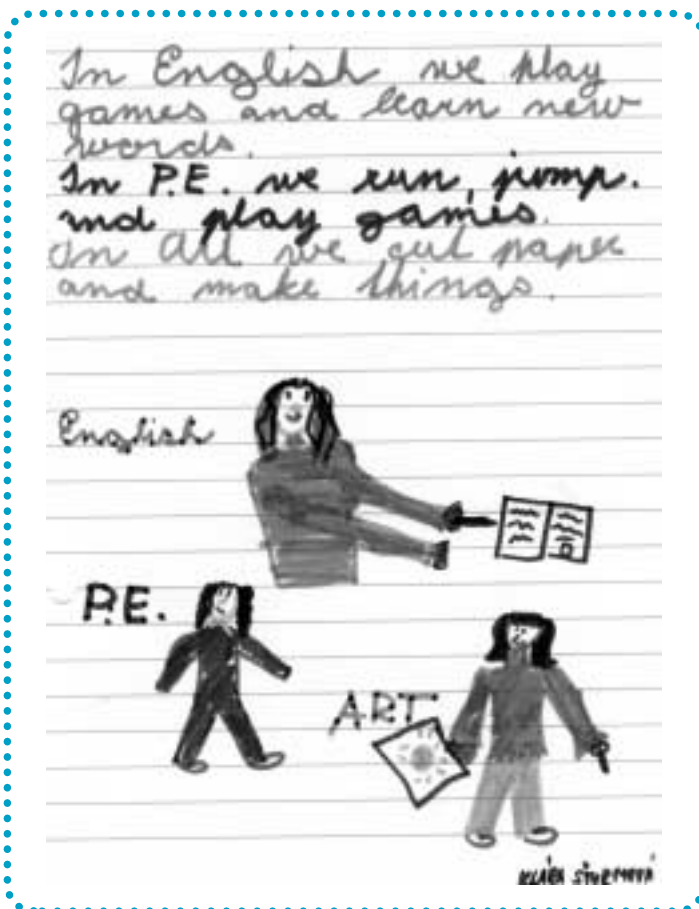 In English we play
games and learn new
words.
In P.E. we run, jump.
and play games.
In Art we cut paper
and make things.
English
P.E.
ART
KLÁRA